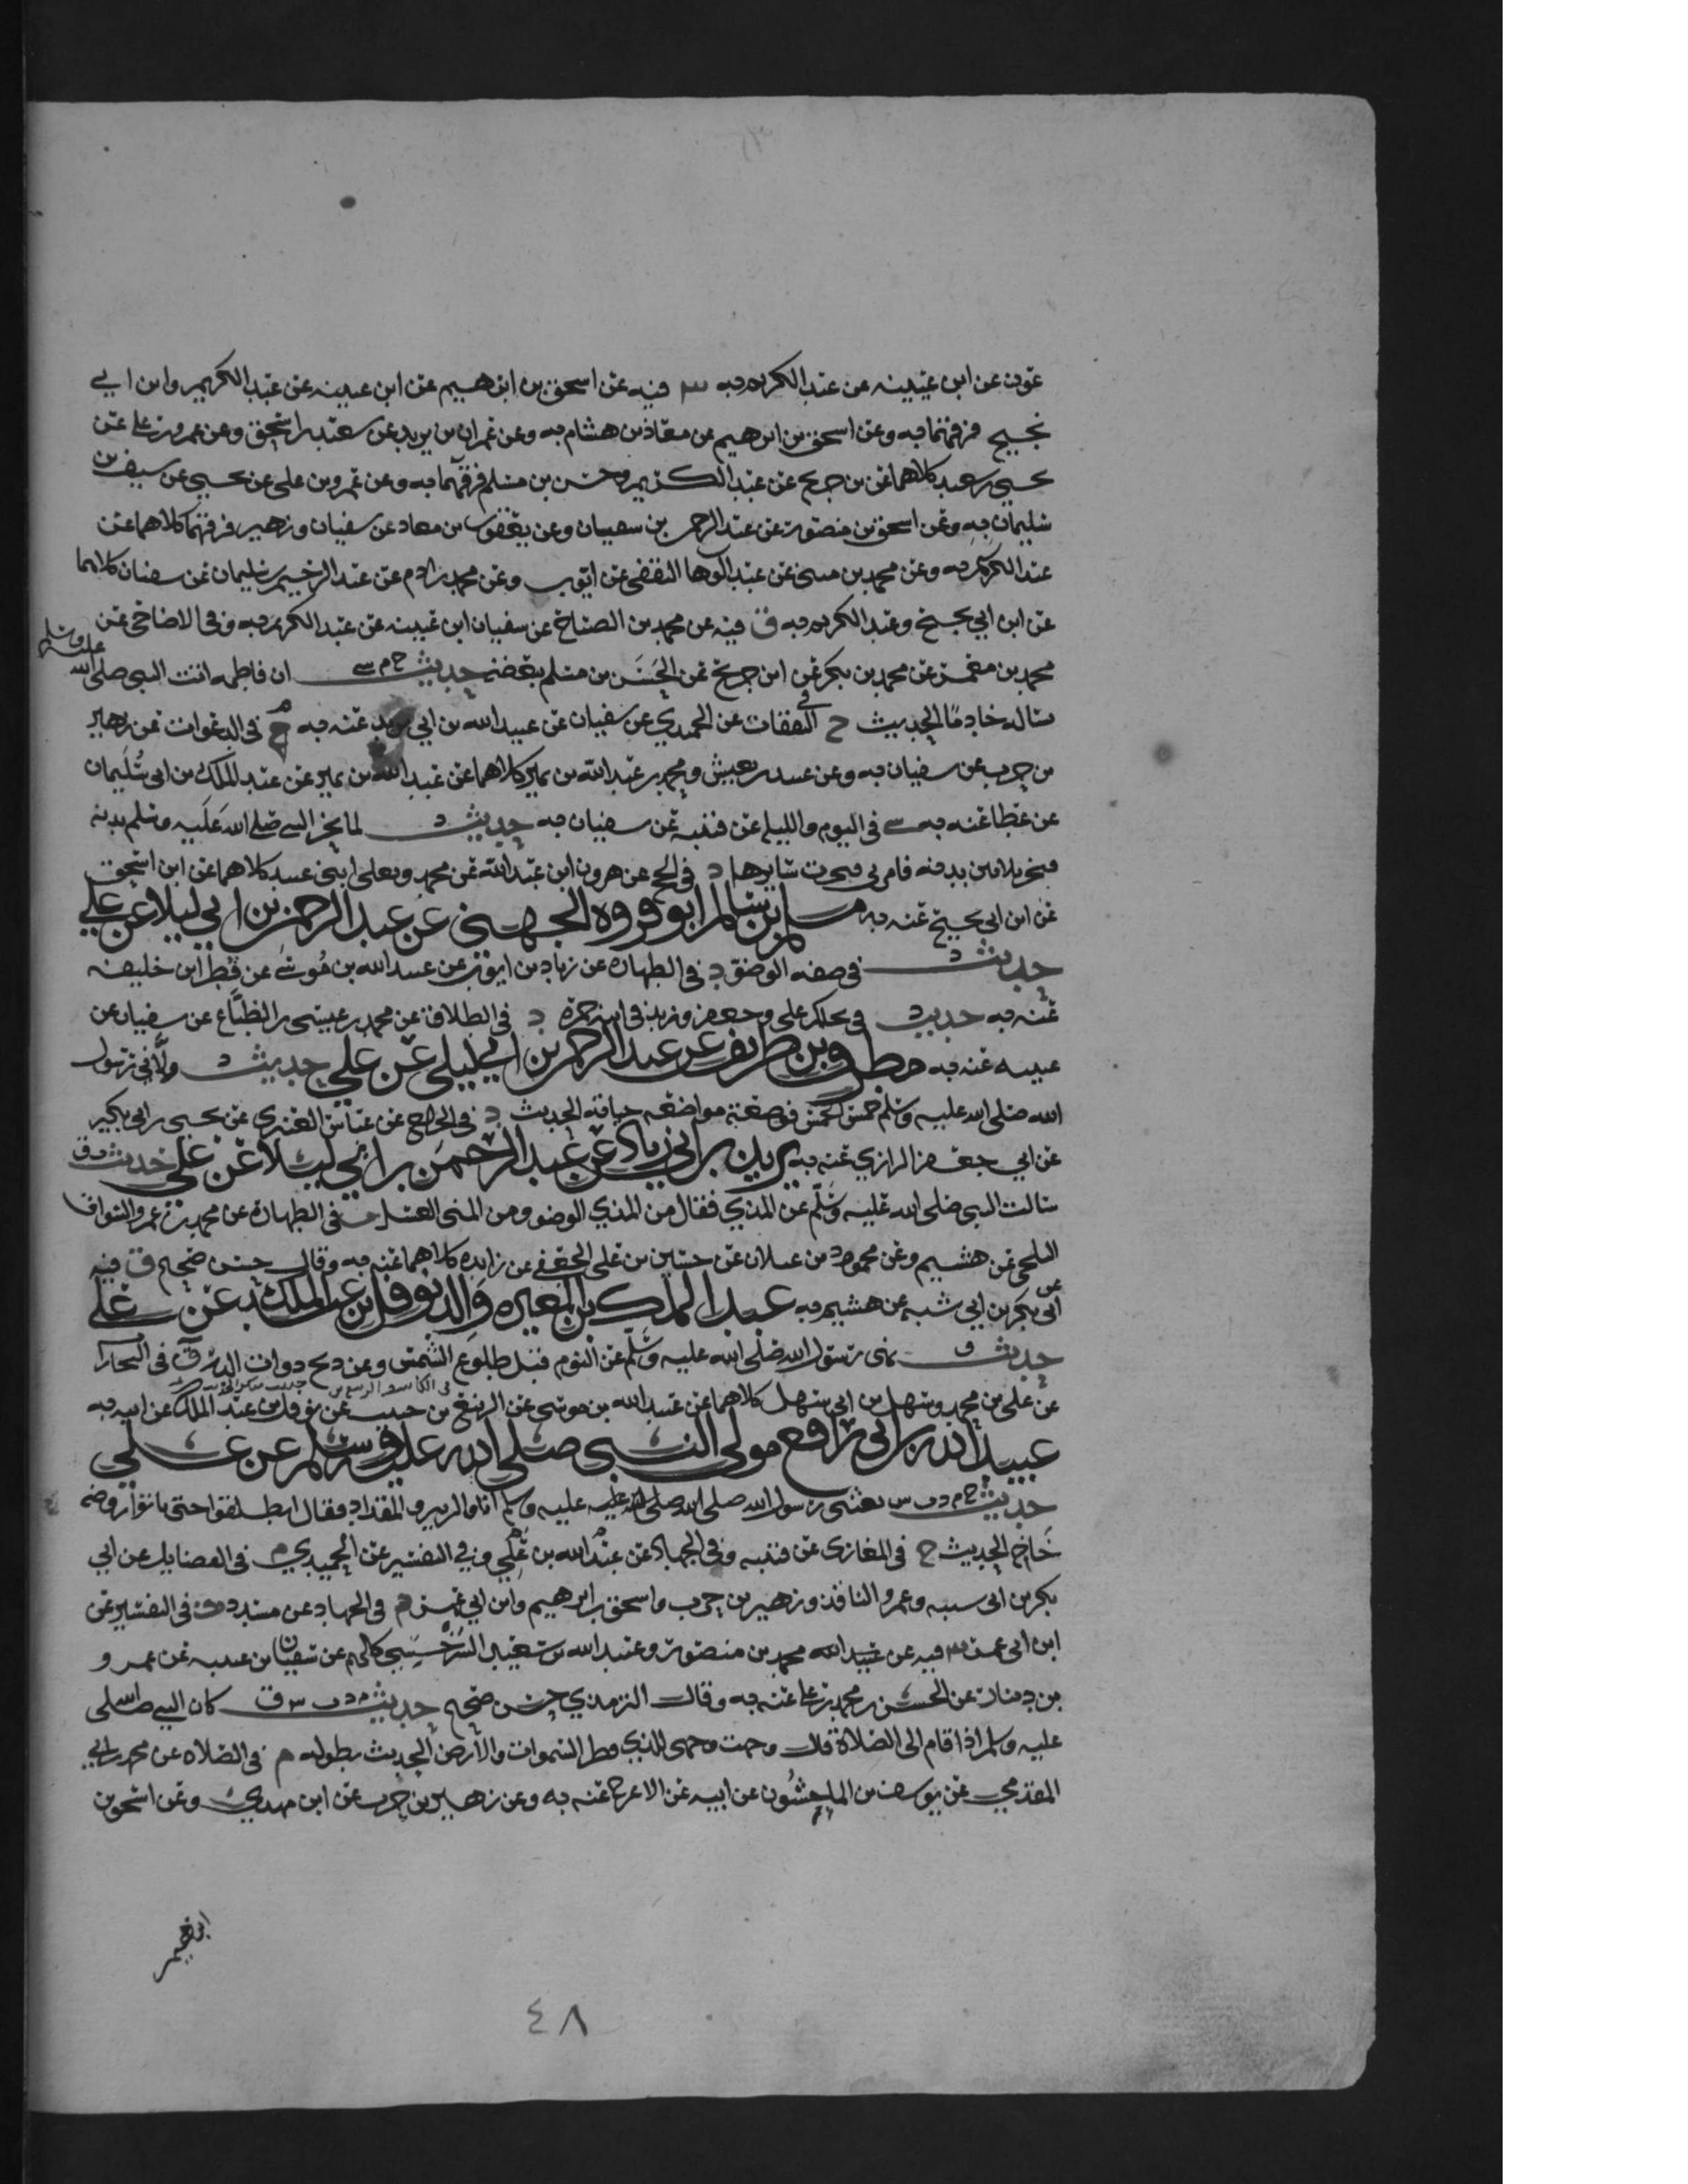 عون عن ابن عيينه عن عبد الكريم به س فيه عن اسحق بن ابرهيم عن ابن عيينه عن عبد الكريم وابن ابي
نجيح فرقهما به وعن اسحق بن ابرهيم عن معاذ بن هشام به وعن عمران بن يزيد عن شعيب بن اسحق وعن عمرو بن علي عن
يحيى بن سعيد كلاهما عن بن جريج عن عبد الكريم وحسن بن مسلم فرقهما به وعن عمرو بن علي عن يحيى عن سيف بن
سليمان به وعن اسحق بن منصور عن عبد الرحمن بن سفيان وعن يعقوب بن معاد عن سفيان وزهير فرقهما كلاهما عن
عبد الكريم به وعن محمد بن مثنى عن عبد الوهاب الثقفي عن ايوب وعن محمد بن ادم عن عبد الرحيم بن سليمان عن سفيان كلاهما
عن ابن ابي نجيح وعبد الكريم به ق فيه عن محمد بن الصباح عن سفيان ابن عيينه عن عبد الكريم به وفي الاضاحي عن
محمد بن معمر عن محمد بن بكر عن ابن جريج عن الحسن بن مسلم ببعضه حديث خ م سي ان فاطمه اتت النبي صلى الله عليه وسلم
تساله خادما الحديث خ في النفقات عن الحميدي عن سفيان عن عبيد الله بن ابي يزيد عنه به م في الدعوات عن زهير
بن حرب عن سفيان به وعن عبيد بن يعيش ومحمد بن عبد الله بن نمير كلاهما عن عبد الله بن نمير عن عبد الملك بن ابي سليمان
عن عطا عنه به سي في اليوم والليله عن قتيبه عن سفيان به حديث د لما نحر النبي صلى الله عليه وسلم بدنه
فنحر ثلاثين بيده فامرني فنحرت سايرها د في الحج عن هرون ابن عبد الله عن محمد ويعلى ابني عبيد كلاهما عن ابن اسحق
عن ابن ابي نجيح عنه به مسلم بن سالم ابو فروه الجهني عن عبد الرحمن بن ابي ليلا عن علي
حديث د في صفه الوضو د في الطهاره عن زياد بن ايوب عن عبيد الله بن موسى عن فطر ابن خليفه
عنه به حديث د في علي وجعفر وزيد في ابنة حمزة د في الطلاق عن محمد بن عيسى بن الطباع عن سفيان عن
عيينه عنه به مطرف بن طريف عن عبد الرحمن بن ابي ليلى عن علي حديث د ولاني رسول
الله صلى الله عليه وسلم خمس الخمس فوضعته مواضعه حياته الحديث د في الخراج عن عباس العنبري عن يحيى بن ابي بكير
عن ابي جعفر الرازي عنه به يزيد بن ابي زياد عن عبد الرحمن بن ابي ليلا عن علي حديث ت ق
سالت النبي صلى الله عليه وسلم عن المذي فقال من المذي الوضو ومن المني الغسل ت في الطهاره عن محمد بن عمرو السواق
البلخي عن هشيم وعن محمود بن غيلان عن حسين بن علي الجعفي عن زايده كلاهما عنه به وقال حسن صحيح ق فيه
عن ابي بكر بن ابي شيبه عن هشيم به عبد الملك بن المغيره والد نوفل بن عبد الملك عن علي
حديث ق نهى رسول الله صلى الله عليه وسلم عن النوم قبل طلوع الشمس وعن ذبح دوات الدر ق في التجارات
عن علي بن محمد وسهل بن ابي سهل كلاهما عن عبيد الله بن موسى عن الربيع بن حبيب عن نوفل بن عبد الملك عن ابيه به
عبيد الله بن ابي رافع مولى النبي صلى الله عليه وسلم عن علي
حديث خ م د ت س بعثني رسول الله صلى الله صلى الله عليه عليه وسلم انا والزبير والمقداد فقال انطلقوا حتى تاتوا روضه
خاخ الحديث خ في المغازي عن قتيبه وفي الجهاد عن عبد الله بن علي وفي التفسير عن الحميدي م في الفضايل عن ابي
بكر بن ابي شيبه وعمرو الناقد وزهير بن حرب واسحق بن ابرهيم وابن ابي عمر د في الجهاد عن مسدد ت في التفسير عن
ابن ابي عمر س فيه عن عبيد الله محمد بن منصور وعبيد الله بن سعيد السرخسي كلهم عن سفيان بن عيينه عن عمرو
بن دينار عن الحسن بن محمد بن علي عنه به وقال الترمذي حسن صحيح حديث م د ت س ق كان النبي صلى الله
عليه وسلم اذا قام الى الصلاة قال وجهت وجهي للذي فطر السموات والارض الحديث بطوله م في الصلاه عن محمد بن ابي
المقدمي عن يوسف بن الماجشون عن ابيه عن الاعرج عنه به وعن زهير بن حرب عن ابن مهدي وعن اسحق بن
ابرهيم
٤٨